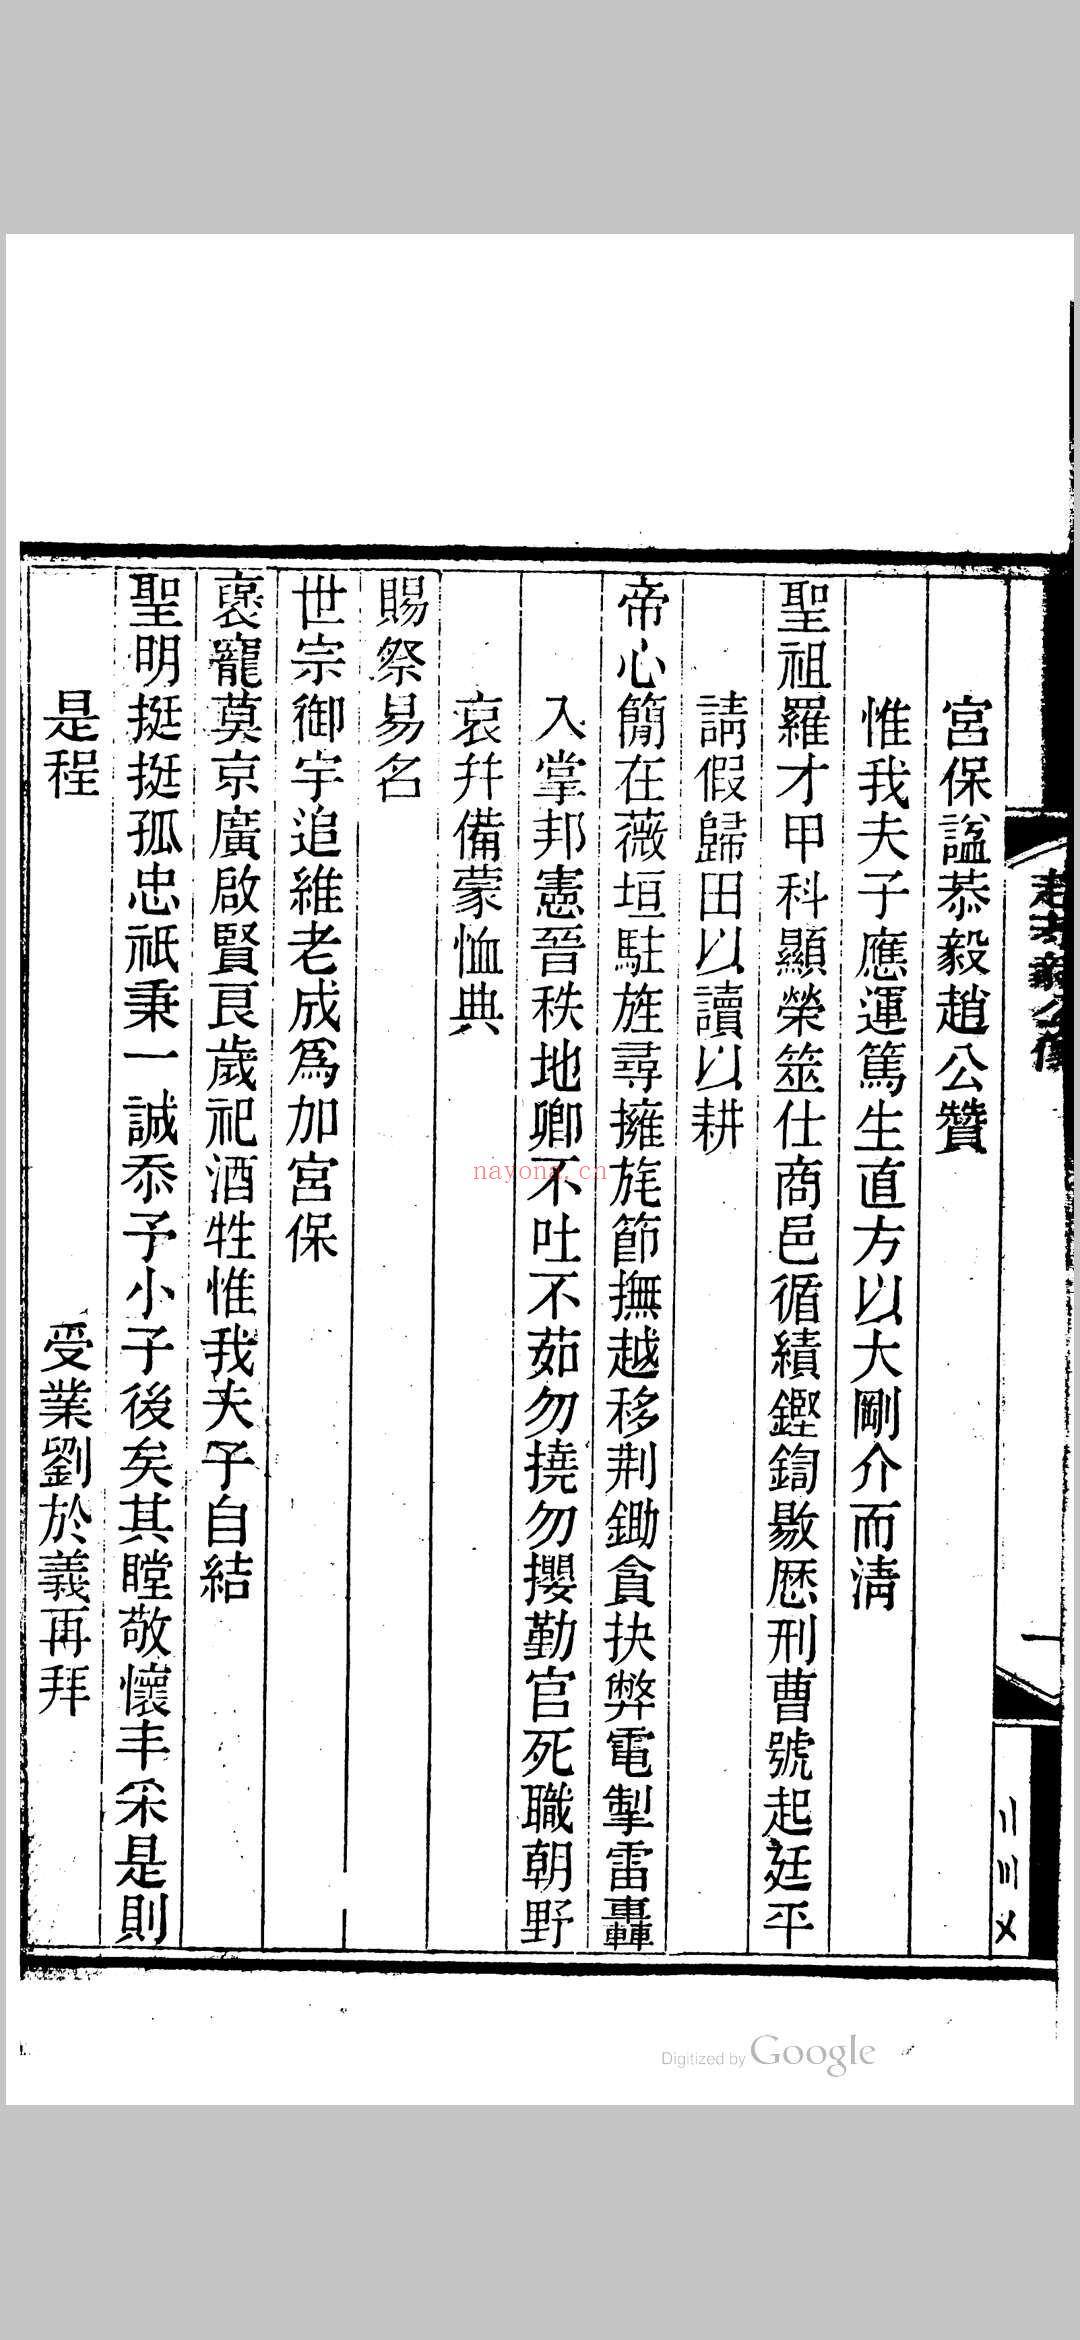 宮保諡恭毅趙公贊
惟我夫子應運篤生直方以大剛介而淸
聖祖羅才甲科顯榮筮仕商邑循績鏗鍧敭歷刑曹號起廷平
請假歸田以讀以耕
帝心簡在薇垣駐旌尋擁旄節撫越移荆鋤貪抉弊電掣雷轟
入掌邦憲晉秩地卿不吐不茹勿撓勿攖勤官死職朝野
哀幷備蒙恤典
賜祭易名
世宗御宇追維老成爲加宮保
褒寵莫京廣啟賢良歲祀酒牲惟我夫子自結
聖明挺挺孤忠祇秉一誠忝予小子後矣其瞠敬懷丰采是則
是程
受業劉於義再拜
一
nayona.cn
Digitized by Google